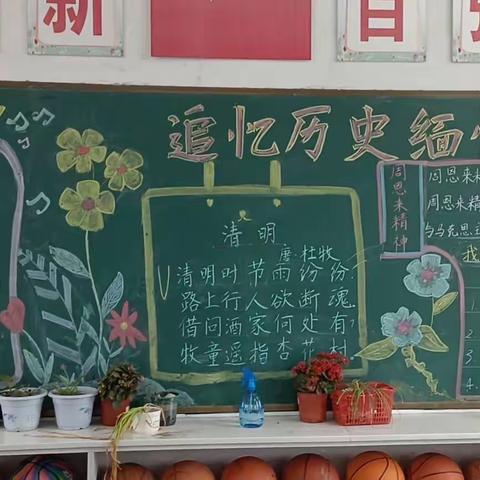 新
追忆历史缅
清明
唐·杜牧
清明时节雨纷纷
路上行人欲断魂
借问酒家何处有?
牧童遥指杏花村
周恩来精神
周恩来精
周恩来精
与马克思
我
1
2
3
4.